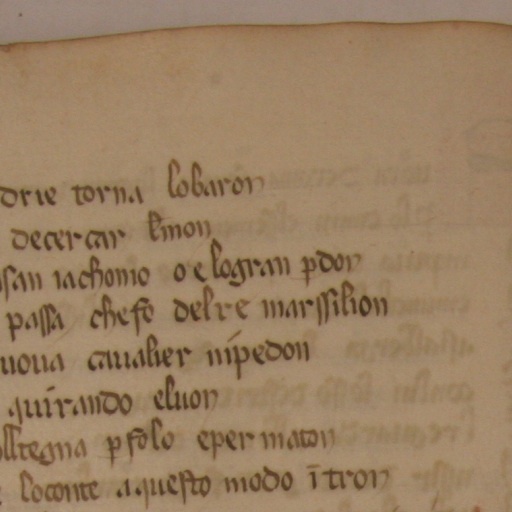 drie torna lobaron
decercar
san iachomo o e logran pdon
passa che fo delre marssilion
uoua caualier nipedon
quirando eluon
pſolo eper maton
loconte aquesto modo ītron